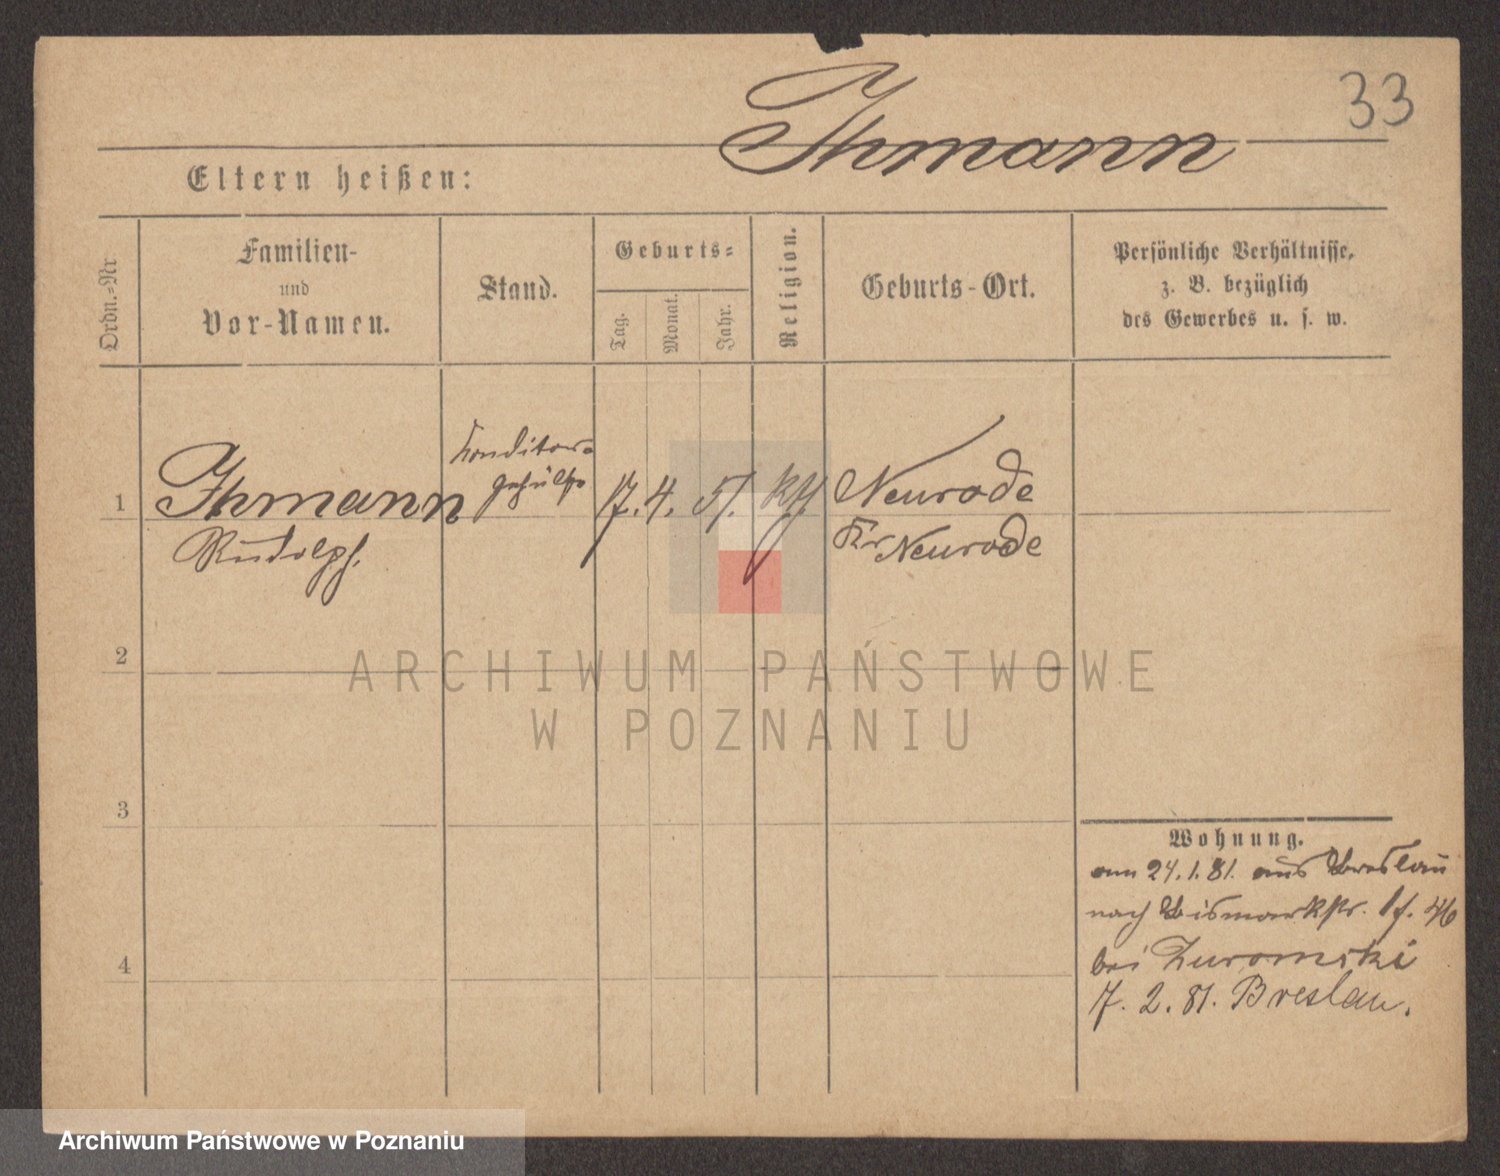 33
Ihmann
Eltern heißen:
Ordn.-Nr
Familien-
und
Vor-Namen.
Stand.
Geburts-
Tag.
Monat.
Jahr.
Religion.
Geburts-Ort.
Persönliche Verhältnisse,
z. B. bezüglich
des Gewerbes u. s. w.
1
Ihmann
Rudolph.
Konditor-
gehülfe
17. 4. 57.
Neurode
Kr Neurode
2
3
4
ARCHIWUM PAŃSTWOWE
W POZNANIU
Wohnung.
am 24.1.81. aus Breslau
nach Bismarkstr. 46
bei Zuromski
7. 2. 81. Breslau.
Archiwum Państwowe w Poznaniu